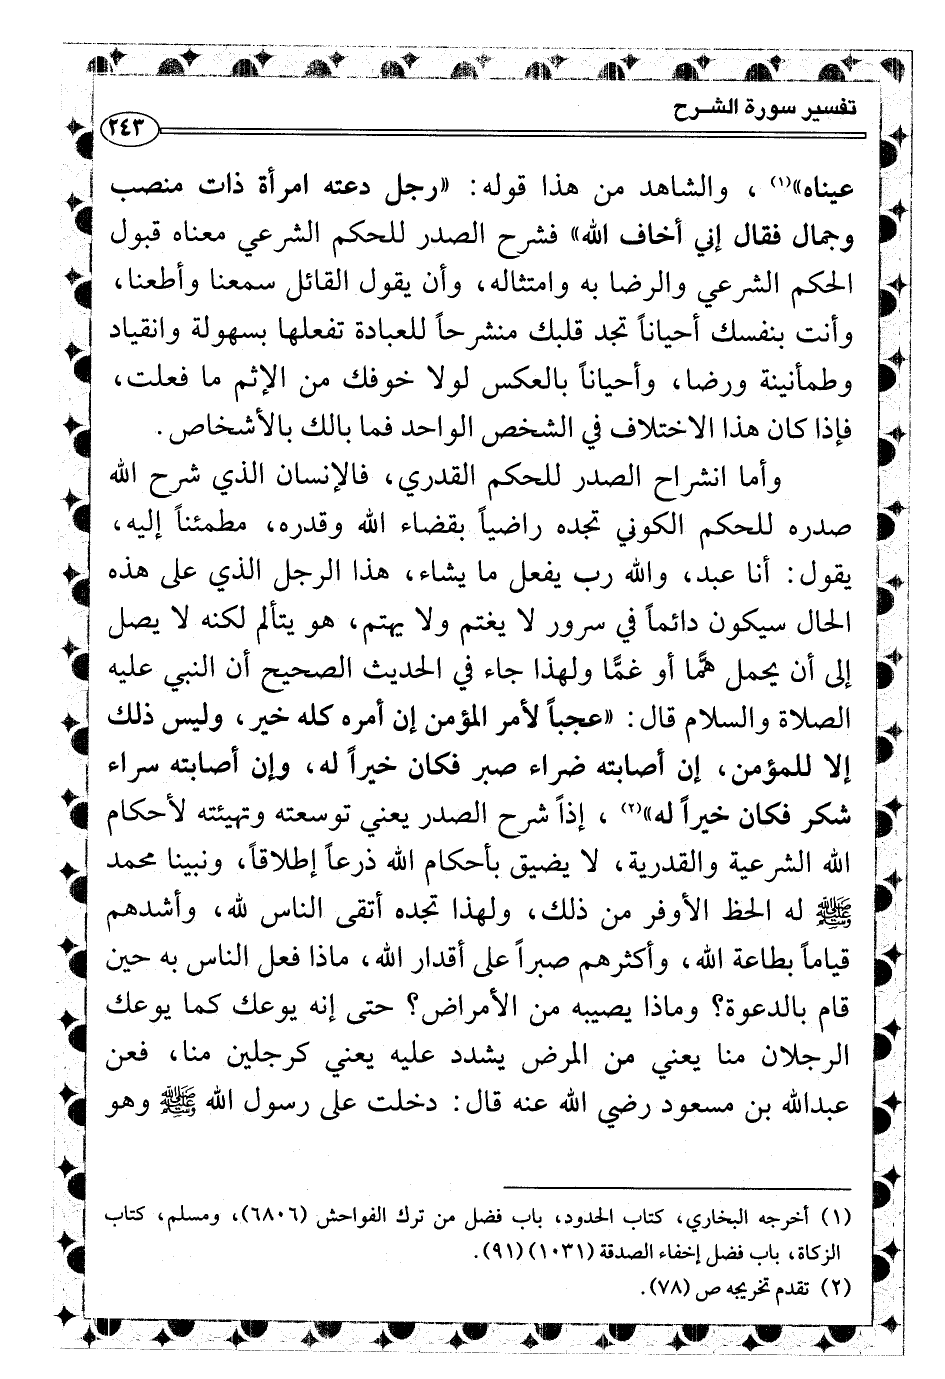 تفسير سورة الشرح
٢٤٣
عيناه»(١) ، والشاهد من هذا قوله: «رجل دعته امرأة ذات منصب
وجمال فقال إني أخاف الله» فشرح الصدر للحكم الشرعي معناه قبول
الحكم الشرعي والرضا به وامتثاله، وأن يقول القائل سمعنا وأطعنا،
وأنت بنفسك أحياناً تجد قلبك منشرحاً للعبادة تفعلها بسهولة وانقياد
وطمأنينة ورضا، وأحياناً بالعكس لولا خوفك من الإثم ما فعلت،
فإذا كان هذا الاختلاف في الشخص الواحد فما بالك بالأشخاص.
وأما انشراح الصدر للحكم القدري، فالإنسان الذي شرح الله
صدره للحكم الكوني تجده راضياً بقضاء الله وقدره، مطمئناً إليه،
يقول: أنا عبد، والله رب يفعل ما يشاء، هذا الرجل الذي على هذه
الحال سيكون دائماً في سرور لا يغتم ولا يهتم، هو يتألم لكنه لا يصل
إلى أن يحمل همًّا أو غمًّا ولهذا جاء في الحديث الصحيح أن النبي عليه
الصلاة والسلام قال: «عجباً لأمر المؤمن إن أمره كله خير، وليس ذلك
إلا للمؤمن، إن أصابته ضراء صبر فكان خيراً له، وإن أصابته سراء
شكر فكان خيراً له»(٢) ، إذاً شرح الصدر يعني توسعته وتهيئته لأحكام
الله الشرعية والقدرية، لا يضيق بأحكام الله ذرعاً إطلاقاً، ونبينا محمد
ﷺ له الحظ الأوفر من ذلك، ولهذا تجده أتقى الناس لله، وأشدهم
قياماً بطاعة الله، وأكثرهم صبراً على أقدار الله، ماذا فعل الناس به حين
قام بالدعوة؟ وماذا يصيبه من الأمراض؟ حتى إنه يوعك كما يوعك
الرجلان منا يعني من المرض يشدد عليه يعني كرجلين منا، فعن
عبدالله بن مسعود رضي الله عنه قال: دخلت على رسول الله ﷺ وهو
(١) أخرجه البخاري، كتاب الحدود، باب فضل من ترك الفواحش (٦٨٠٦)، ومسلم، كتاب
الزكاة، باب فضل إخفاء الصدقة (١٠٣١) (٩١).
(٢) تقدم تخريجه ص (٧٨).